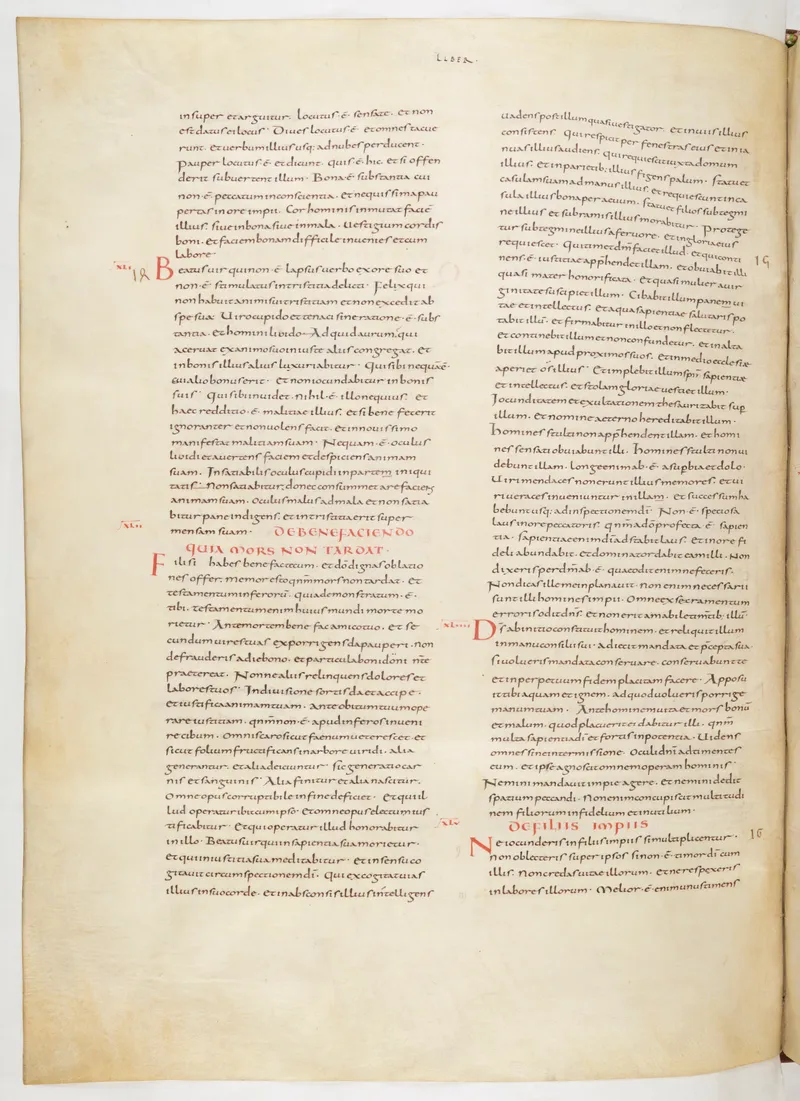 LIBER·
insuper etarguitur· locutus·ē· sensate· etnon
est datus ei locus· Diues locutus·ē· et omnes tacue
runt· et uerbum illius usq; ad nubes perducent·
pauper locutus·ē· et dicunt· quis·ē· hic· et si offen
derit subuertent illum· Bona·ē· substantia cui
non·ē· peccatum in conscientia· et nequissima pau
pertas in ore impii· Cor hominis inmutat faciē
illius· siue in bona siue in mala· Uestigium cordis
boni· et faciem bonam difficile inuenies et cum
labore·
XLI 14
Beatus uir qui non·ē· lapsus uerbo ex ore suo et
non·ē· stimulatus in tristitia delicti· Felix qui
non habuit animi sui tristitiam et non excedit ab
spe sua· Uiro cupido et tenaci sine ratione·ē· subs
tantia· et homini liuido· Ad quid aurum; qui
aceruat ex animo suo iniuste aliis congregat· et
in bonis illius alius luxuriabitur· Qui sibi nequā·ē·
cui alio bonus erit· et non iocundabitur in bonis
suis· Qui sibi inuidet· nihil·ē· illo nequius· et
haec redditio·ē· malitiae illius· et si bene fecerit
ignoranter et non uolens facit· et in nouissimo
manifestat malitiam suam· Nequam·ē· oculus
liuidi et auertens faciem et despiciens animam
suam· Insatiabilis oculus cupidi in partem iniqui
tatis· Non satiabitur; donec consummet arefaciens
animam suam· oculus malus ad mala et non satia
bitur pane indigens· et in tristitia erit super
XLII
mensam suam· DE BENEFACIENDO
QUIA MORS NON TARDAT·
Fili si habes benefac tecum· et dō dignas oblatio
nes offer; memor esto qnm mors non tardat· et
testamentum inferorū· quia demonstratum·ē·
tibi· testamentum enim huius mundi morte mo
rietur· Ante mortem benefac amico tuo· et se
cundum uires tuas exporrigens da pauperi· non
defrauderis a die bono· et particula boni doni n̄ te
praetereat· Nonne aliis relinques dolores et
labores tuos· In diuisione sortis da et accipe·
et iustifica animam tuam· ante obitum tuum ope
rare iustitiam· qnm non·ē· apud inferos inueni
re cibum· Omnis caro sicut faenum ueterescet· et
sicut folium fructificans in arbore uiridi· Alia
generantur· et alia deiciuntur· sic generatio car
nis et sanguinis· Alia finitur et alia nascitur·
Omne opus corruptibile in fine deficiet· et qui il
lud operatur ibit cum ipso· et omne opus electum ius
tificabitur· et qui operatur illud honorabitur
in illo· Beatus uir qui in sapientia sua morietur·
et qui in iustitia sua meditabitur· et in sensu co
gitauit circumspectionem dī· Qui excogitat uias
illius in suo corde· et in absconsis illius intellegens
uadens post illum quasi uestigator· et in uiis illius
consistens· Qui respicit per fenestras eius et in ia
nuas illius audiens· qui requiescit iuxta domum
illius· et in parietib; illius figens palum· statuet
casulam suam ad manus illius· et requiescunt in ca
sula illius bona per aeuum· statuet filios sub tegmi
ne illius et sub ramis illius morabitur· Protege
tur sub tegmine illius a feruore· et in gloria eius
requiescet· Qui timet dm faciet illud· et qui conti
15
nens·ē· iustitiae apphendet illam· et obuiabit illi
quasi mater honorificata· et quasi mulier a uir
ginitate suscipiet illum· Cibabit illum panem ui
tae et intellectus· et aqua sapientiae salutaris po
tabit illū· et firmabitur in illo et non flectetur·
et continebit illum et non confundetur· et in alta
bit illum apud proximos suos· et in medio ecclesiae
aperiet os illius· et implebit illum spū sapientiae
et intellectus· et stolam gloriae uestiet illum·
Iocunditatem et exultationem thesaurizabit sup
illum· et nomine aeterno hereditabit illum·
Homines stulti non apphendent illam· et homi
nes sensati obuiabunt illi· Homines stulti non ui
debunt illam· Longe enim ab·ē· a supbia et dolo·
Uiri mendaces non erunt illius memores· et ui
ri ueraces inueniuntur in illam· et successum ha
bebunt usq; ad inspectionem dī· Non·ē· speciosa
laus in ore peccatoris· qnm a dō profecta·ē· sapien
tia· sapientia enim dī adstabit laus· et in ore fi
deli abundabit· et dominator dabit eam illi· Non
dixeris per dm ab·ē· quae odit enim ne feceris·
Non dicas ille me inplanauit· non enim necessarii
sunt illi homines impii· Omne exsecramentum
erroris odit dns· et non erit amabile timtib; illū·
XLIII
Ds ab initio constituit hominem· et reliquit illum
in manu consilii sui· adiecit mandata et pcepta sua·
si uolueris mandata conseruare· conseruabunt te
et in perpetuum fidem placitam facere· Apposu
it tibi aquam et ignem· ad quod uolueris porrige
manum tuam· Ante hominem uita et mors bonū
et malum· quod placuerit ei dabitur illi· qnm
multa sapientia dī et fortis in potentia· Uidens
omnes sine intermissione· Oculi dnī ad timentes
eum· et ipse agnoscit omnem operam hominis·
Nemini mandauit impie agere· et nemini dedit
spatium peccandi· Non enim concupiscit multitudi
nem filiorum infidelium et inutilium·
XLIV
DE FILIIS IMPIIS
16
Ne iocunderis in filiis impiis si multiplicentur·
non oblecteris super ipsos si non·ē· timor dī cum
illis· Non credas uitae illorum· et ne respexeris
in labores illorum· Melior·ē· enim unus timens